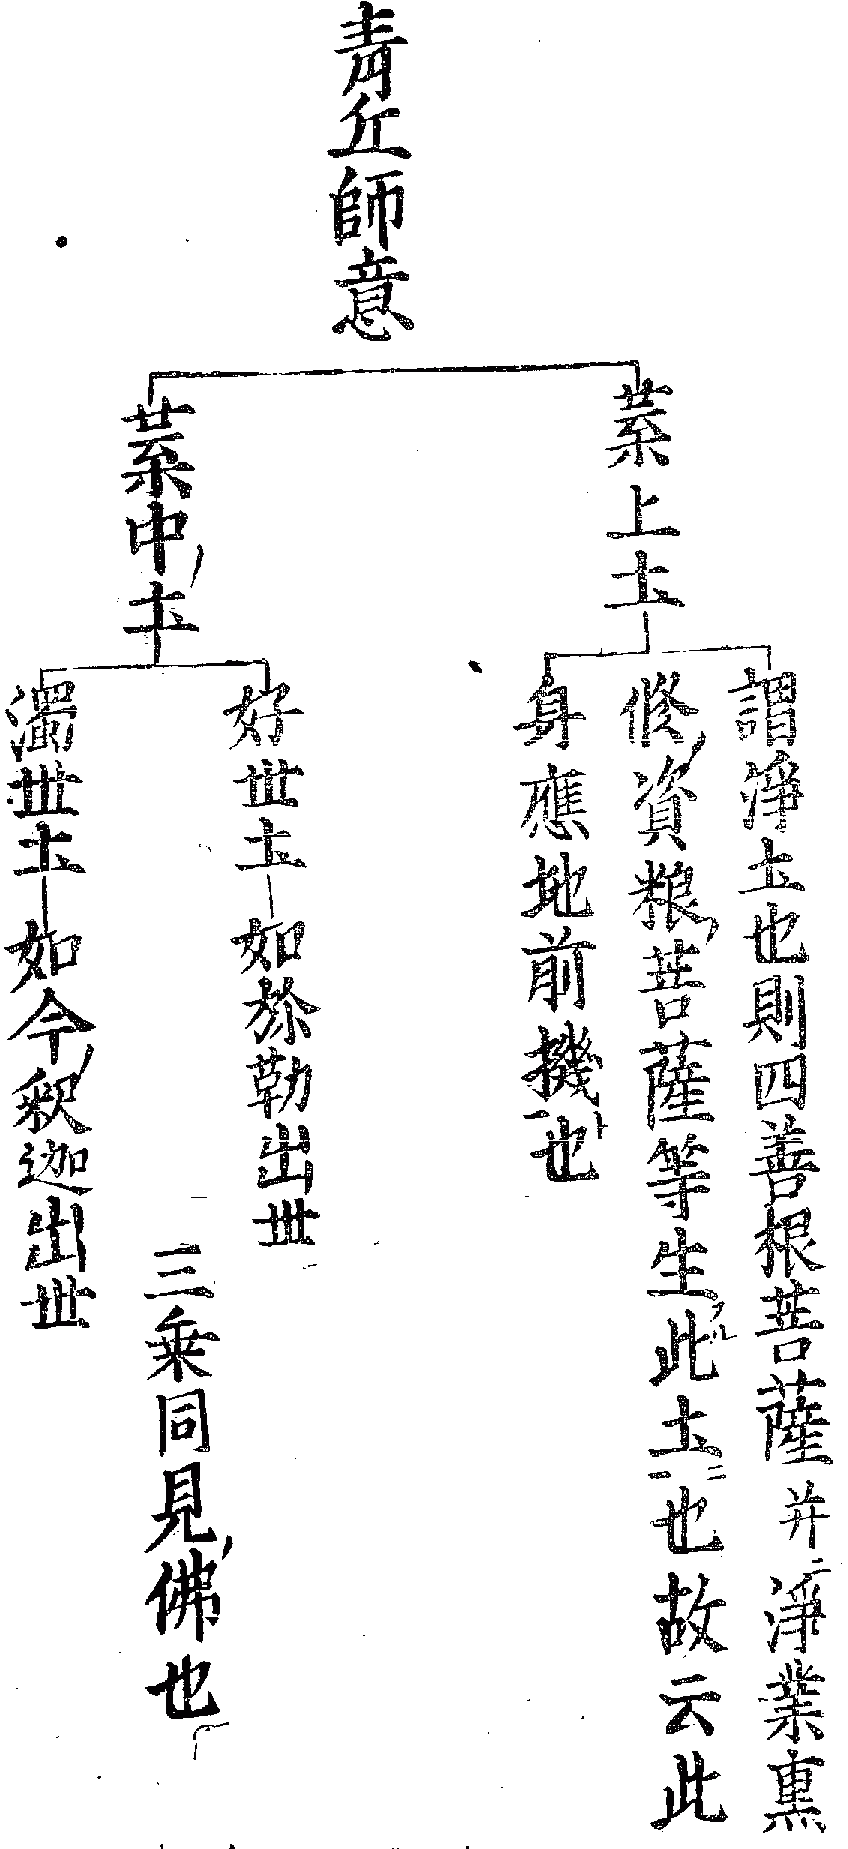 青丘師意
葉上土
謂淨土也則四善根菩薩并ニ淨業熏
修ノ資粮ノ菩薩等生アル此土ニ一也故云此
身應地前機ト一也
葉中ノ土
好世土 如弥勒出世
濁世土 如今ノ釈迦出世
三乗同見ノ佛也